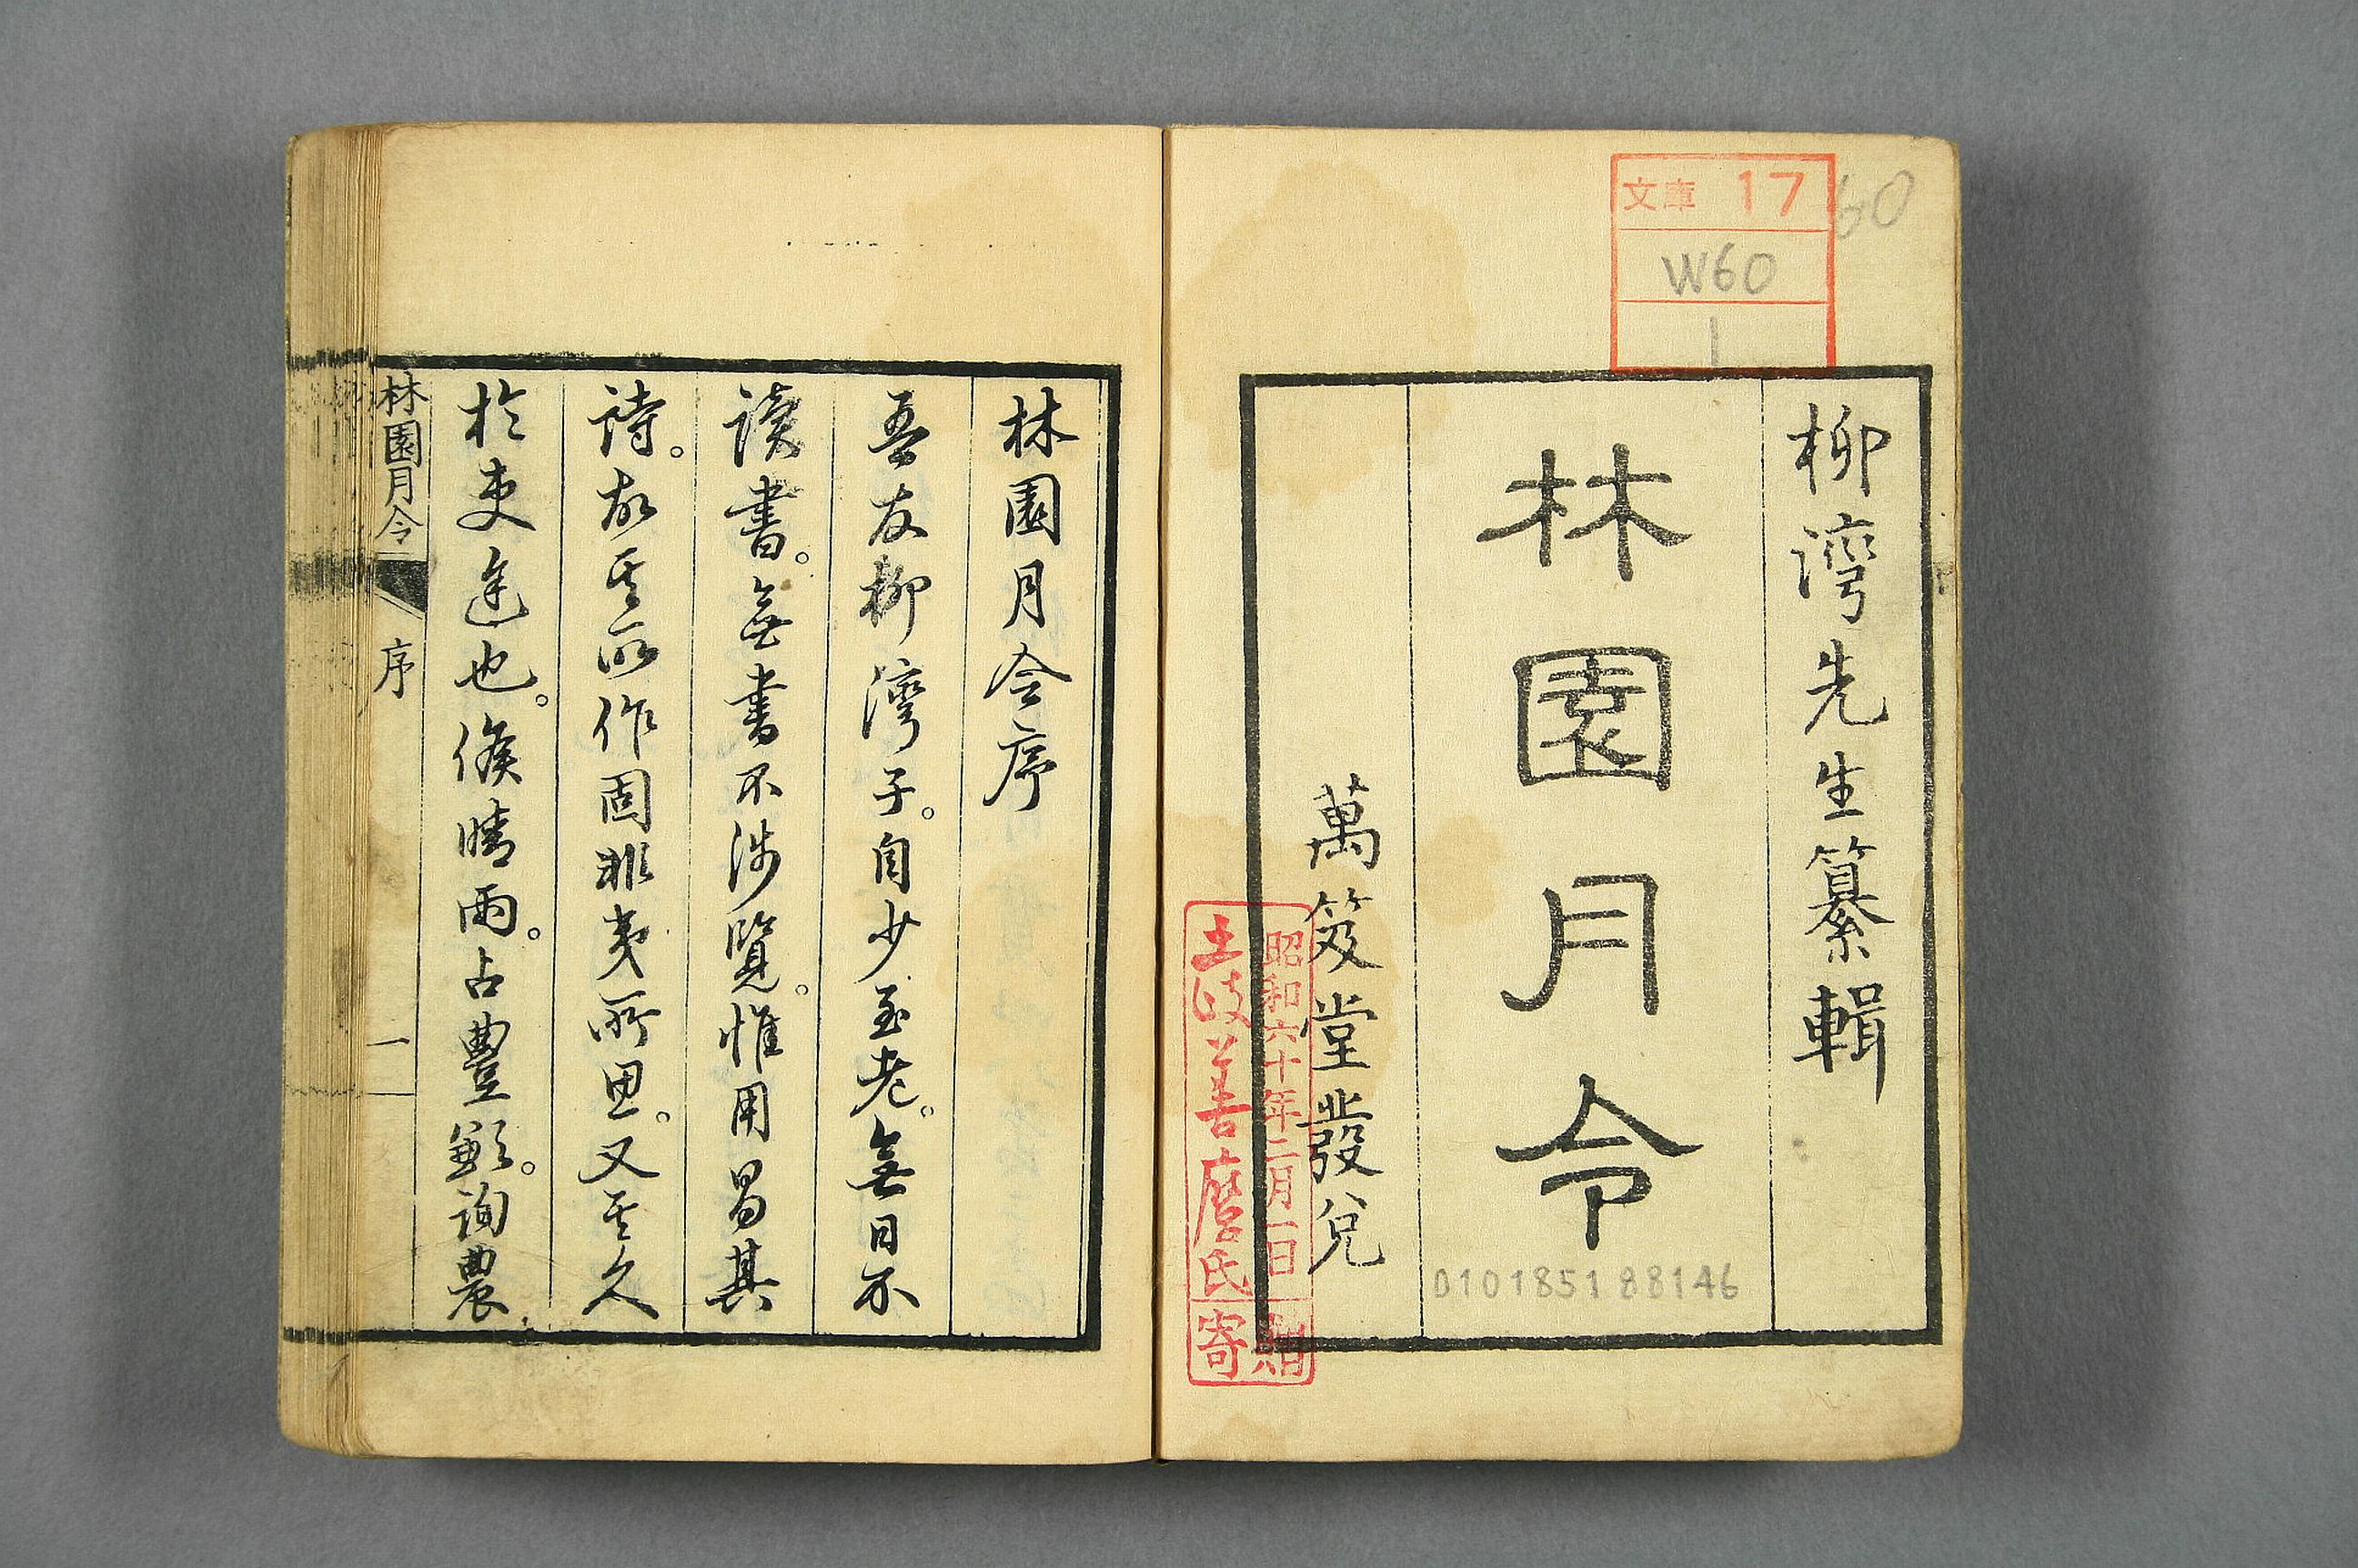 文庫 17
60
W60
1
柳灣先生纂輯
林園月令
萬笈堂發兌
0101851 88146
昭和六十年二月一日
土岐善麿氏寄贈
林園月令序
吾友柳灣子。自少至老。無日不
讀書。無書不涉覽。惟用昌其
詩。故其所作固非夷所思。又其久
於吏途也。候晴雨。占豐歉。詢農
林園月令
序
一